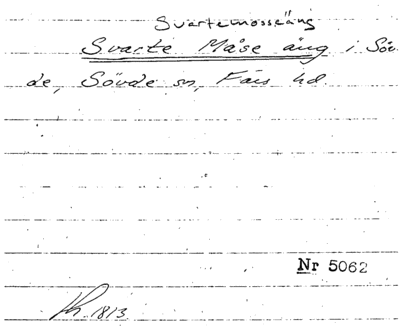 Svartemosseäng
Svarte Måse äng i Söv
de, Sövde sn, Färs hd.
Nr 5062
1813